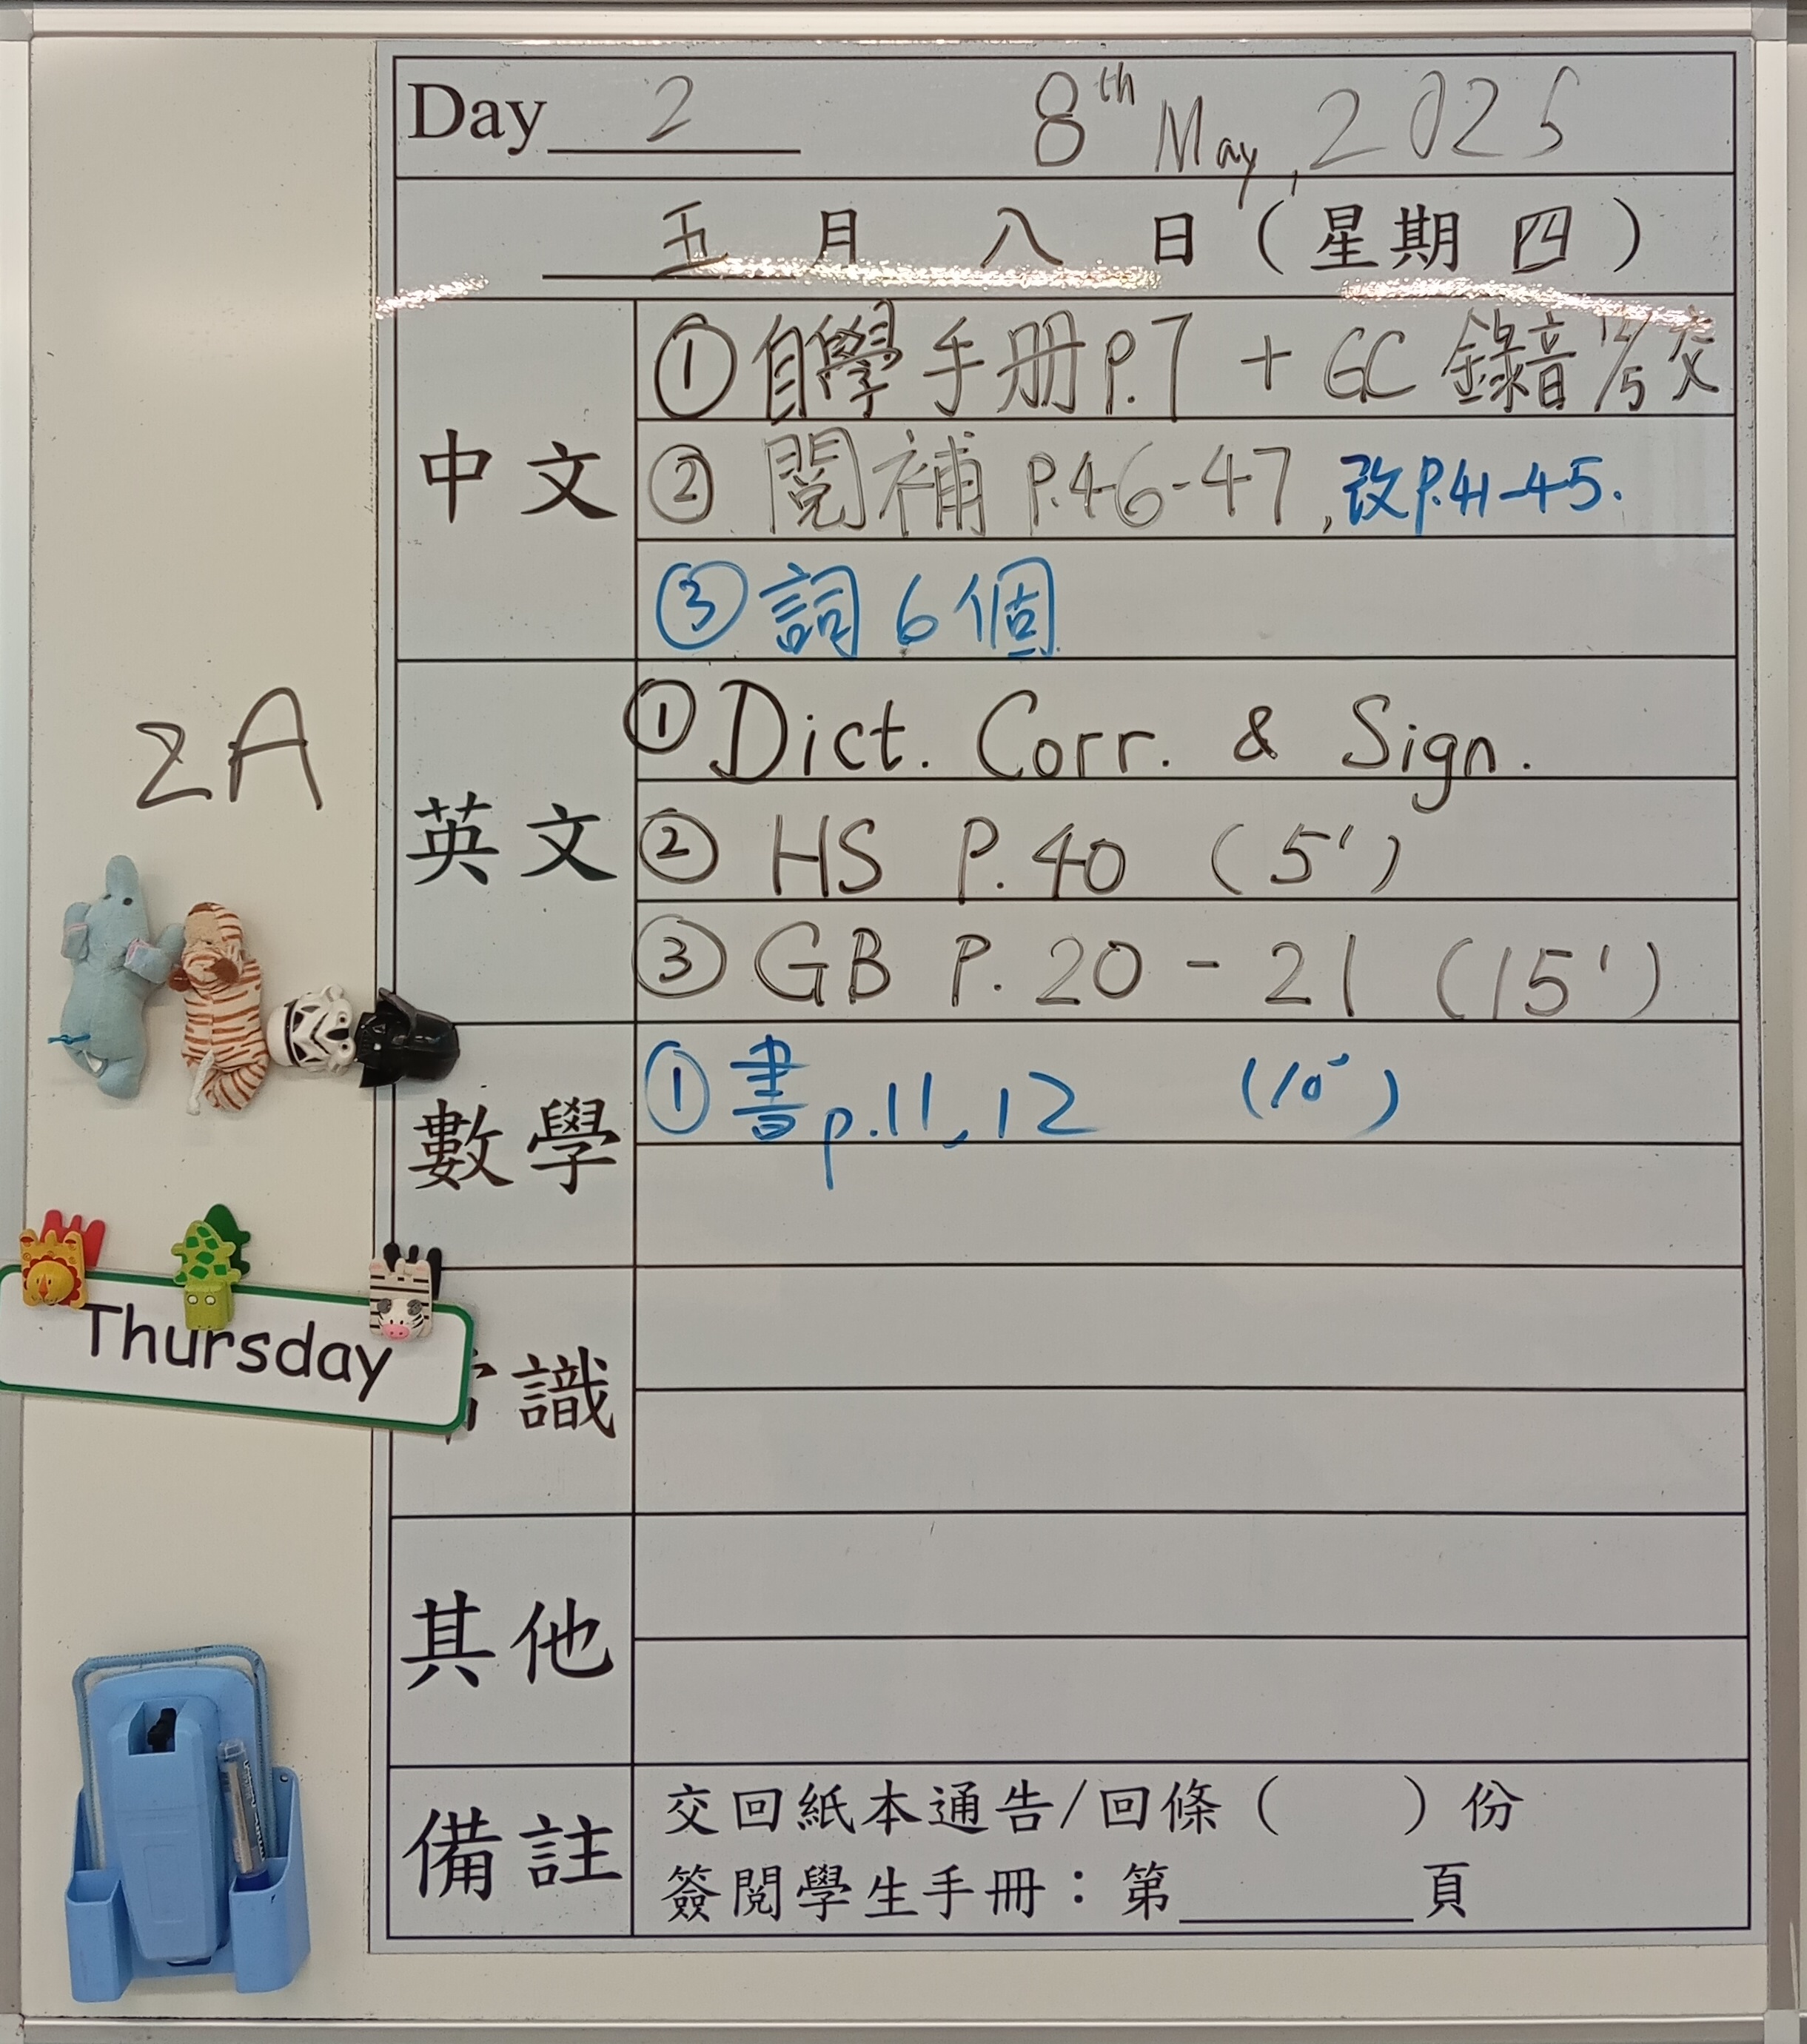 Day 2 8th May, 2025
五月八日（星期四）
中文
①自學手册P.7 + GC 錄音 12/5交
② 閱補 P.46-47, 改P.41-45.
③詞6個
2A
英文
①Dict. Corr. & Sign.
② HS P.40 (5')
③ GB P.20-21 (15')
數學
①書p.11, 12 (10')
Thursday
識
其他
備註
交回紙本通告/回條（ ）份
簽閱學生手冊：第____頁